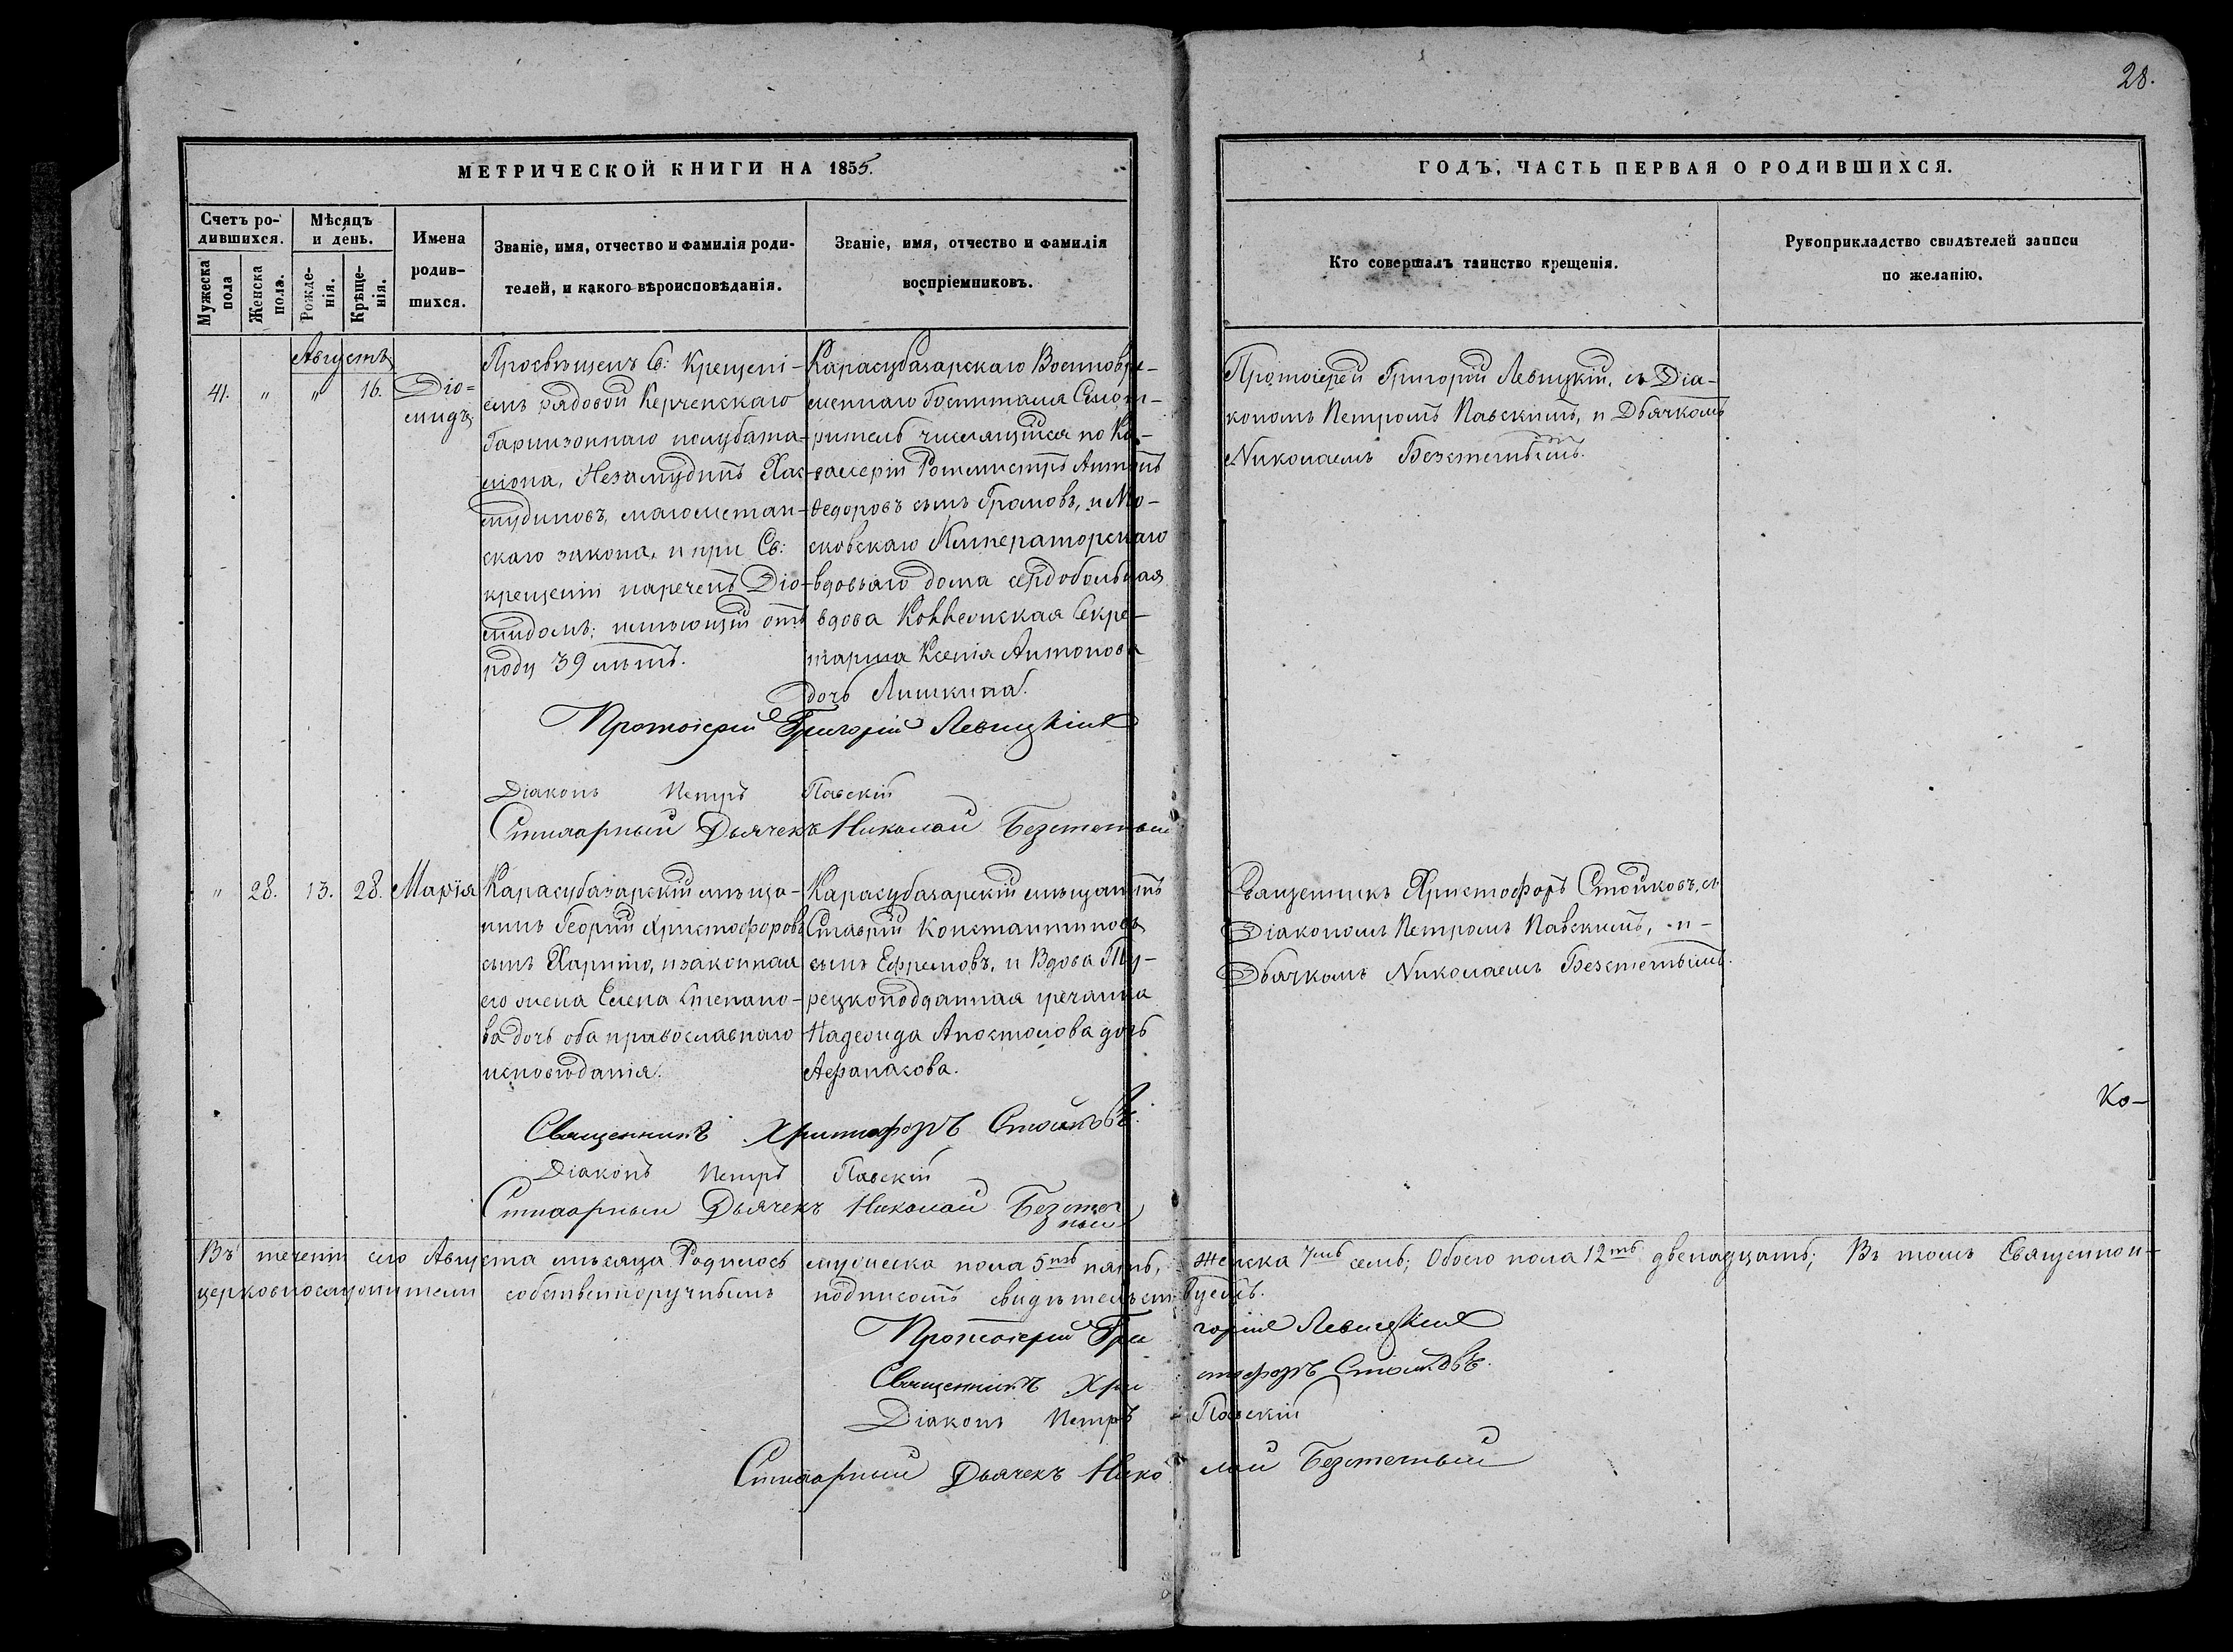 28.
МЕТРИЧЕСКОЙ КНИГИ НА 1855.
ГОДЪ, ЧАСТЬ ПЕРВАЯ О РОДИВШИХСЯ.
Счетъ ро-
дившихся.
Мужеска
пола
Женска
пола.
Мѣсяцъ
и день.
Рожде-
нія.
Крѣще-
нія.
Имена
родив-
шихся.
Званіе, имя, отчество и фамилія роди-
телей, и какого вѣроисповѣданія.
Званіе, имя, отчество и фамилія
воспріемниковъ.
Кто совершалъ таинство крещенія.
Рукоприкладство свидѣтелей записи
по желанію.
Августъ
41. " " 16. Діо=
мидъ
Просвѣщенъ Св: Крещені-
емъ рядовой Керченскаго
Гарнизоннаго полубата-
ліона, Незамудинъ Хас-
мудиновъ, магометан-
скаго закона, и при Св:
крещеніи нареченъ Діо-
мидомъ; имѣющій отъ
роду 39 лѣтъ.
Карасубазарскаго Военновре-
меннаго Госпиталя Смот-
ритель числящійся по Ка-
валеріи Ротмистръ Антонъ
Федоровъ сынъ Громовъ, и Мо-
сковскаго Императорскаго
вдовьяго дома сердобольная
вдова Коллежская Секре-
тарша Ксенія Антонова
дочь Лишкина.
Протоіерей Григорій Левицкій, съ Діа-
кономъ Петромъ Павскимъ, и Дьячкомъ
Николаемъ Безстетнымъ.
Протоіерей Григорій Левицкій
Діаконъ Петръ Павскій
Стихарный Дьячекъ Николай Безстетный
" 28. 13. 28. Марія
Карасубазарскій мѣща-
нинъ Георгій Христофоровъ
сынъ Харито, и законная
его жена Елена Степано-
ва дочь оба православнаго
исповѣданія.
Карасубазарскій мѣщанинъ
Ставрій Константиновъ
сынъ Ефремовъ, и Вдова Ту-
рецкоподданная гречанка
Надежда Апостолова дочь
Афанасова.
Священникъ Христофоръ Стойковъ, съ
Діакономъ Петромъ Павскимъ, и
Дьячкомъ Николаемъ Безстетнымъ.
Ко-
Священникъ Христофоръ Стойковъ.
Діаконъ Петръ Павскій
Стихарный Дьячекъ Николай Безстет
ный
Въ теченіи сего Августа мѣсяца Родилось мужеска пола 5ть пять, женска 7мь семь; Обоего пола 12ть двенадцать; Въ томъ Священно и
церковнослужители собственноручнымъ подписомъ свидѣтельствуемъ.
Протоіерей Григорій Левицкій
Священникъ Христофоръ Стойковъ.
Діаконъ Петръ Павскій
Стихарный Дьячекъ Николай Безстетный